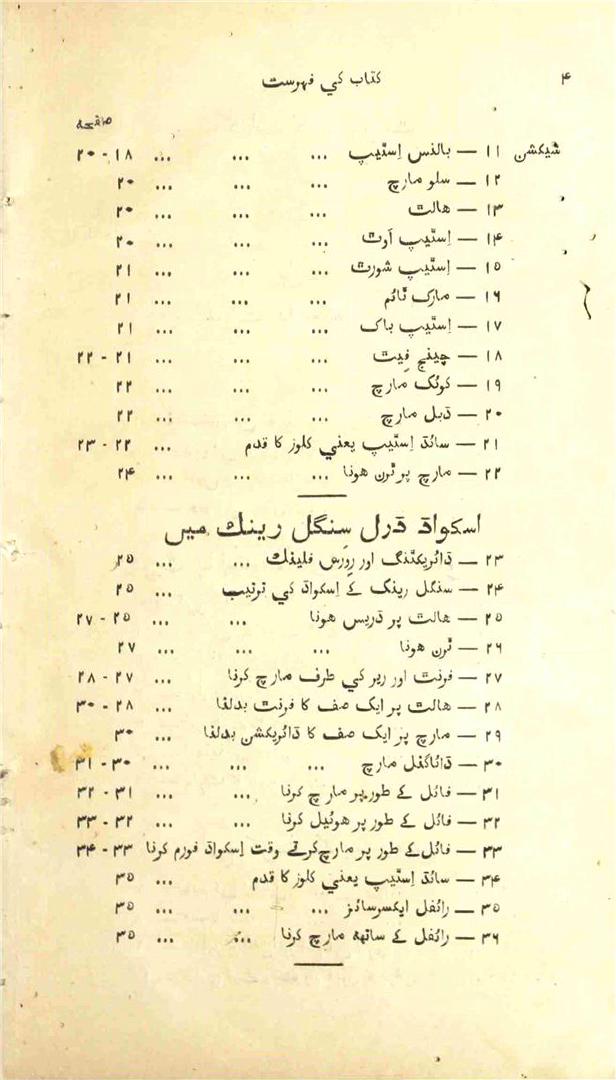 ۴ کتاب کي فهرست
صفحه
شیکشن ۱۱ — بالنس اِسٹیپ ... ... ... ۱۸ - ۲۰
۱۲ — سلو مارچ ... ... ... ۲۰
۱۳ — هالٹ ... ... ... ۲۰
۱۴ — اِسٹیپ آوٹ ... ... ... ۲۰
۱۵ — اِسٹیپ شورٹ ... ... ... ۲۱
۱۶ — مارک ٹائم ... ... ... ۲۱
۱۷ — اِسٹیپ باک ... ... ... ۲۱
۱۸ — چینج فِیٹ ... ... ... ۲۱ - ۲۲
۱۹ — کوئک مارچ ... ... ... ۲۲
۲۰ — ڈبل مارچ ... ... ... ۲۲
۲۱ — سائڈ اِسٹیپ یعني کلوز کا قدم ... ۲۲ - ۲۳
۲۲ — مارچ پر ٹرن هونا ... ... ... ۲۴
اسکواڈ ڈرل سنگل رینک میں
۲۳ — ڈائریکٹنگ اور رِورس فلینک ... ... ۲۵
۲۴ — سنگل رینک کے اِسکواڈ کي ترتیب ... ۲۵
۲۵ — هالٹ پر ڈریس هونا ... ... ۲۵ - ۲۷
۲۶ — ٹرن هونا ... ... ... ۲۷
۲۷ — فرنٹ اور ریر کي طرف مارچ کرنا ... ۲۷ - ۲۸
۲۸ — هالٹ پر ایک صف کا فرنٹ بدلنا ... ۲۸ - ۳۰
۲۹ — مارچ پر ایک صف کا ڈائریکشن بدلنا ... ۳۰
۳۰ — ڈائاگنل مارچ ... ... ... ۳۰ - ۳۱
۳۱ — فائل کے طور پر مارچ کرنا ... ... ۳۱ - ۳۲
۳۲ — فائل کے طور پر هوئیل کرنا ... ... ۳۲ - ۳۳
۳۳ — فائل کے طور پر مارچ کرتے وقت اِسکواڈ فورم کرنا ۳۳ - ۳۴
۳۴ — سائڈ اِسٹیپ یعني کلوز کا قدم ... ۳۵
۳۵ — رائفل ایکسرسائز ... ... ... ۳۵
۳۶ — رائفل کے ساتھه مارچ کرنا ... ... ۳۵